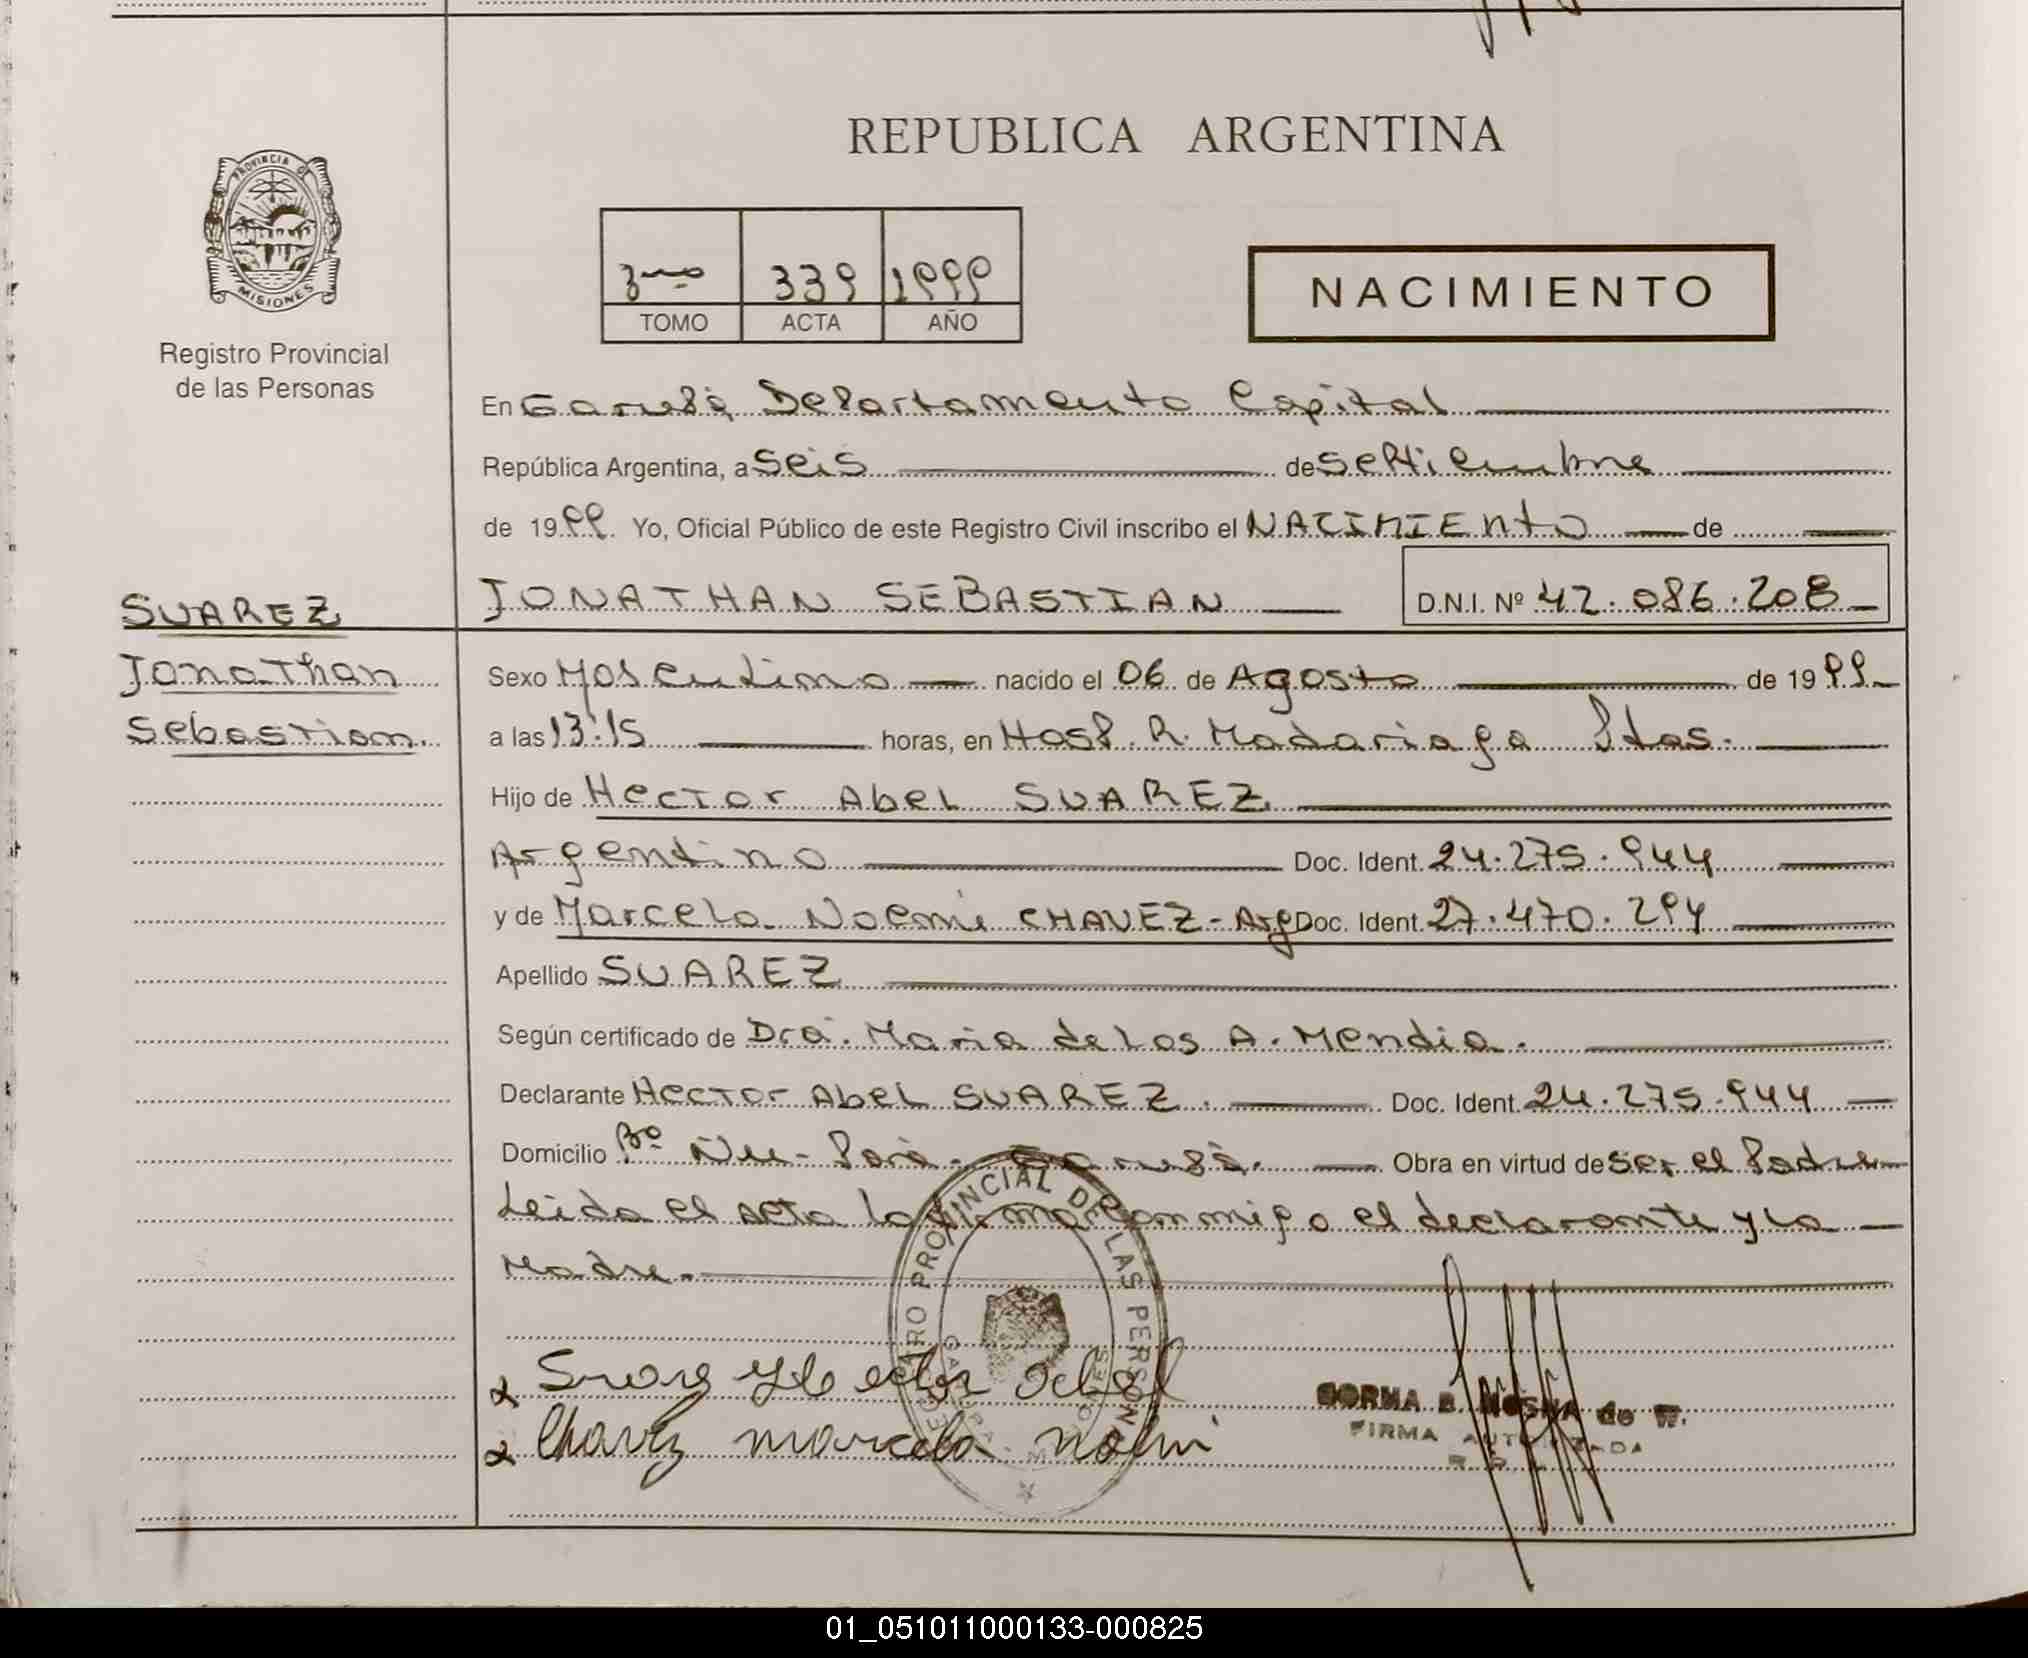 REPUBLICA ARGENTINA
PROVINCIA DE
MISIONES
Registro Provincial
de las Personas
3ro 339 1999
TOMO ACTA AÑO
NACIMIENTO
En Garupá Departamento Capital
República Argentina, a Seis de Septiembre
de 1999. Yo, Oficial Público de este Registro Civil inscribo el NACIMIENTO de
JONATHAN SEBASTIAN D.N.I. Nº 42.086.208
SUAREZ
Jonathan
Sebastian.
Sexo Masculino nacido el 06 de Agosto de 1999
a las 13:15 horas, en Hosp. R. Madariaga Pdas.
Hijo de Hector Abel SUAREZ
Argentino Doc. Ident. 24.275.944
y de Marcela Noemi CHAVEZ - Arg Doc. Ident. 27.470.294
Apellido SUAREZ
Según certificado de Dra. Maria de los A. Mendia.
Declarante Hector Abel SUAREZ. Doc. Ident. 24.275.944
Domicilio Bº Ñu-Porá. Garupá. Obra en virtud de Ser el Padre
Leida el acta la firma conmigo el declarante y la
Madre.
REGISTRO PROVINCIAL DE LAS PERSONAS
GARUPA - MISIONES
Suarez Hector Abel
Chavez marcela noemi
de W.
FIRMA AUTORIZADA
01_051011000133-000825